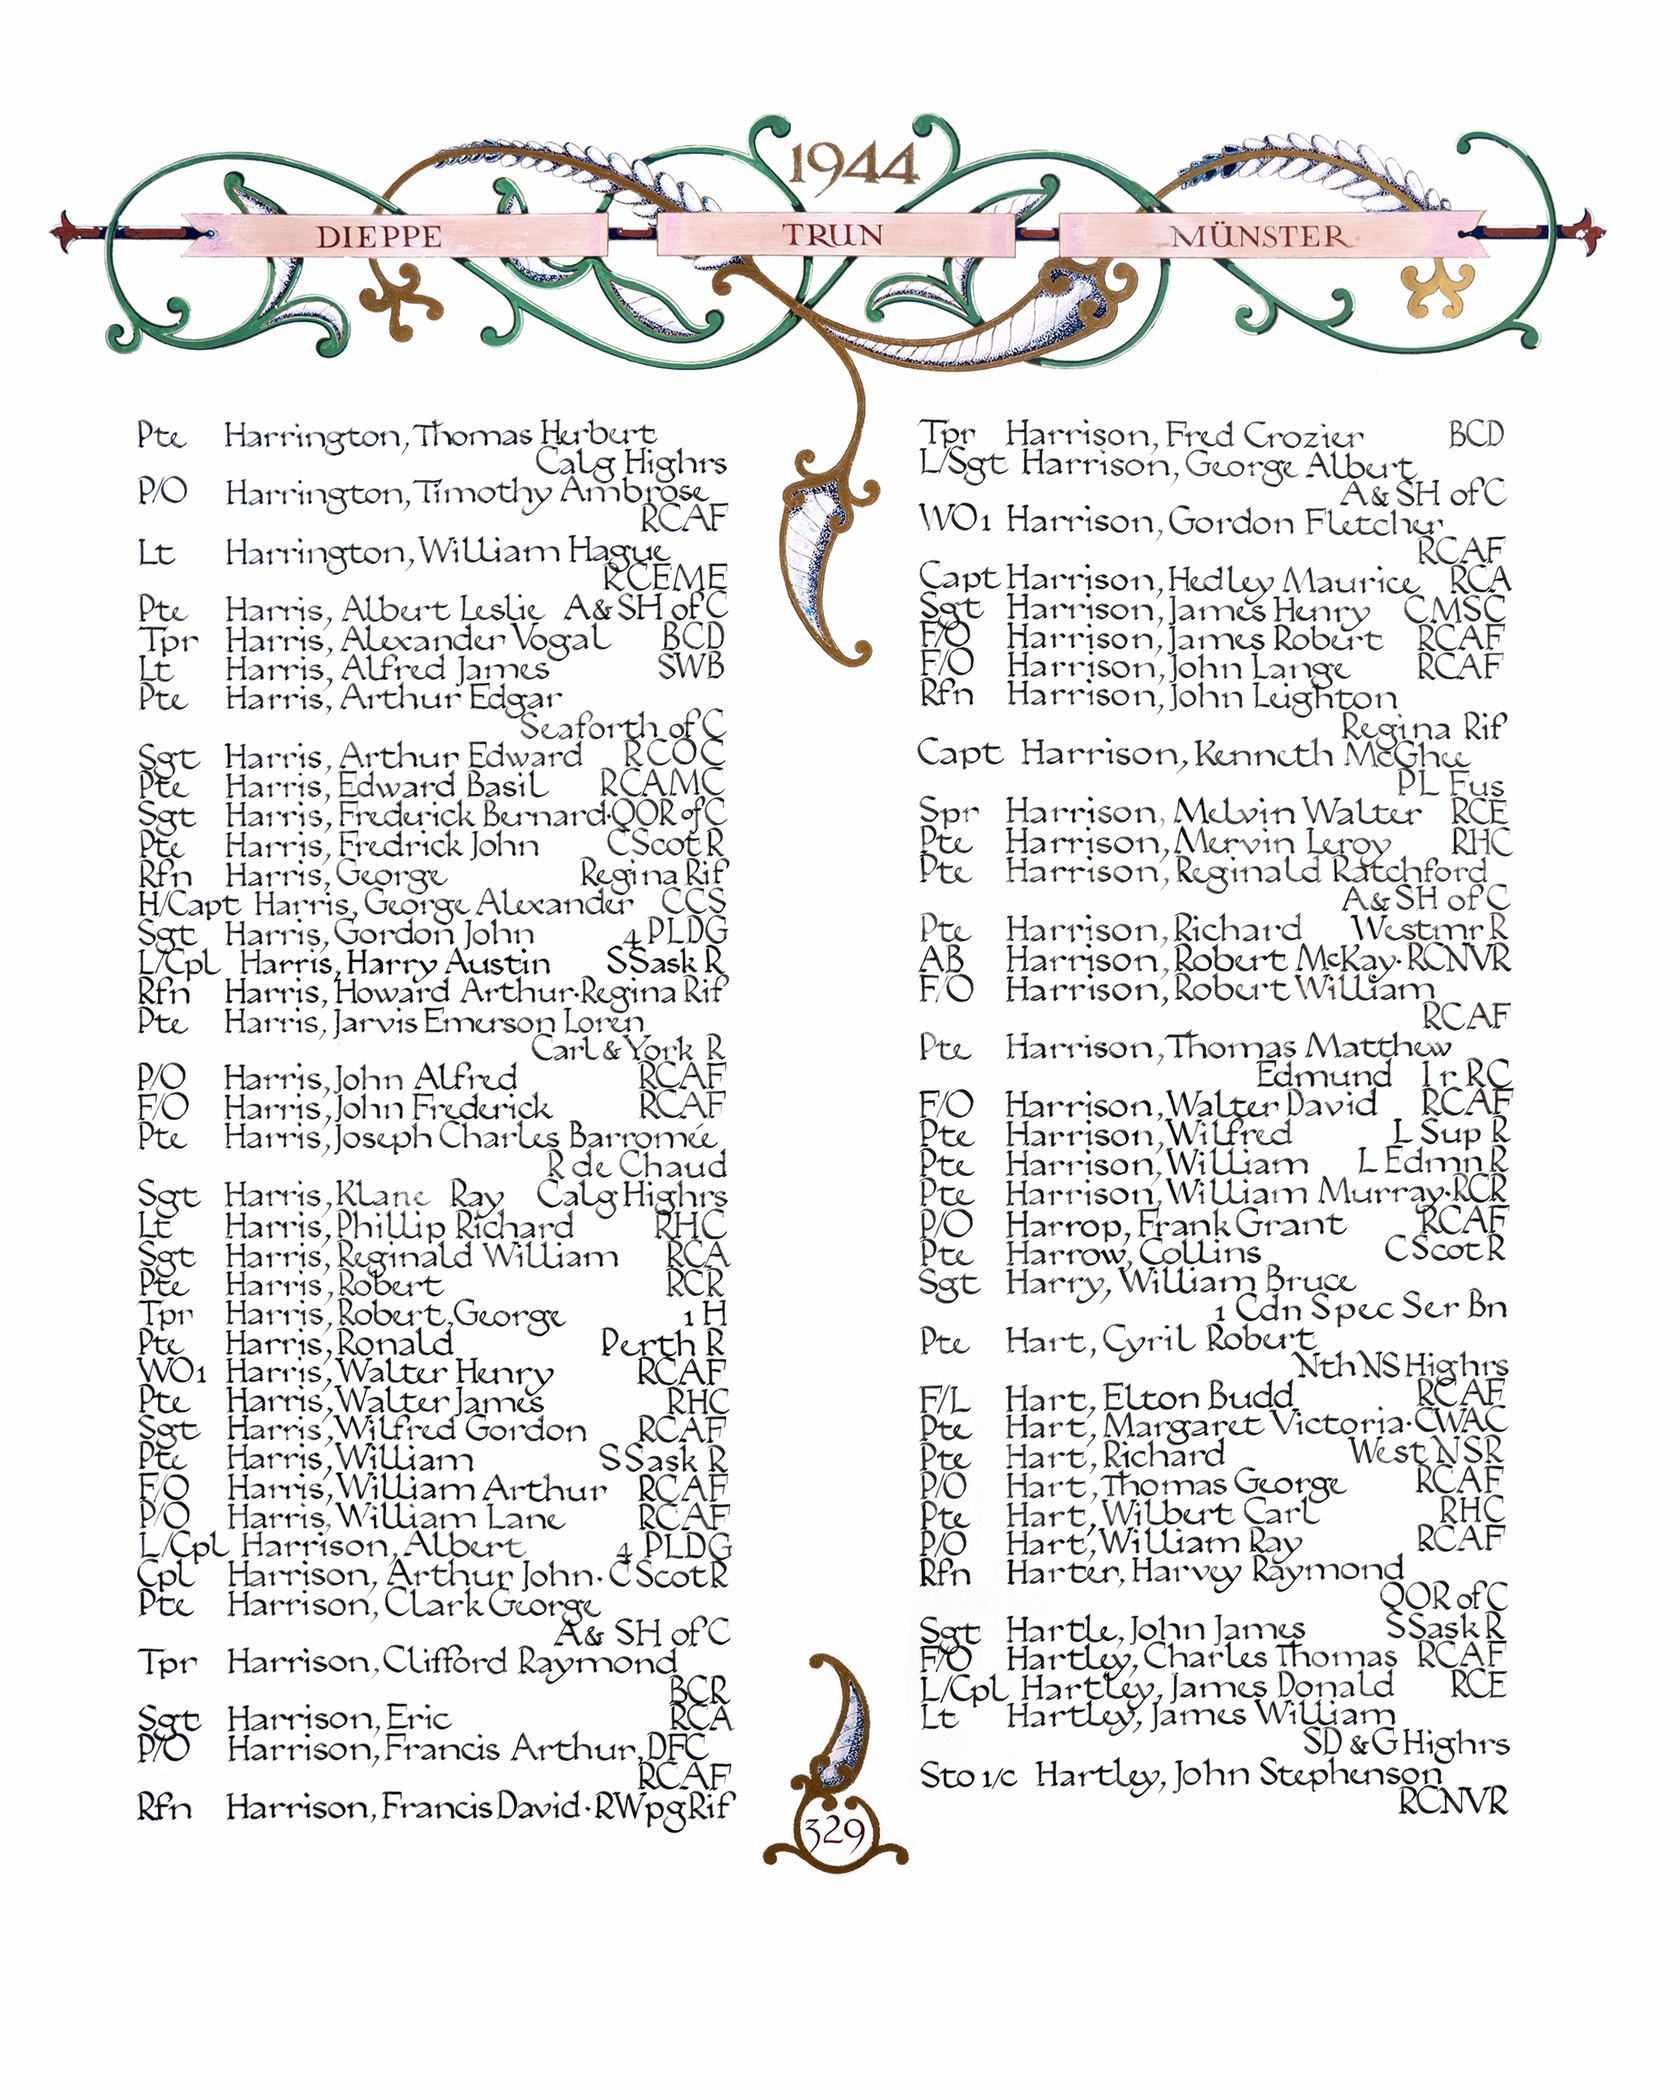 1944
DIEPPE TRUN MÜNSTER
Pte Harrington, Thomas Herbert
Calg Highrs
P/O Harrington, Timothy Ambrose
RCAF
Lt Harrington, William Hague
RCEME
Pte Harris, Albert Leslie A & SH of C
Tpr Harris, Alexander Vogal BCD
Lt Harris, Alfred James SWB
Pte Harris, Arthur Edgar
Seaforth of C
Sgt Harris, Arthur Edward RCOC
Pte Harris, Edward Basil RCAMC
Sgt Harris, Frederick Bernard·QOR of C
Pte Harris, Fredrick John C Scot R
Rfn Harris, George Regina Rif
H/Capt Harris, George Alexander CCS
Sgt Harris, Gordon John 4 PLDG
L/Cpl Harris, Harry Austin S Sask R
Rfn Harris, Howard Arthur·Regina Rif
Pte Harris, Jarvis Emerson Loren
Carl & York R
P/O Harris, John Alfred RCAF
F/O Harris, John Frederick RCAF
Pte Harris, Joseph Charles Barromée
R de Chaud
Sgt Harris, Klane Ray Calg Highrs
Lt Harris, Phillip Richard RHC
Sgt Harris, Reginald William RCA
Pte Harris, Robert RCR
Tpr Harris, Robert, George 1 H
Pte Harris, Ronald Perth R
WO1 Harris, Walter Henry RCAF
Pte Harris, Walter James RHC
Sgt Harris, Wilfred Gordon RCAF
Pte Harris, William S Sask R
F/O Harris, William Arthur RCAF
P/O Harris, William Lane RCAF
L/Cpl Harrison, Albert 4 PLDG
Cpl Harrison, Arthur John·C Scot R
Pte Harrison, Clark George
A & SH of C
Tpr Harrison, Clifford Raymond
BCR
Sgt Harrison, Eric RCA
P/O Harrison, Francis Arthur, DFC
RCAF
Rfn Harrison, Francis David·R Wpg Rif
Tpr Harrison, Fred Crozier BCD
L/Sgt Harrison, George Albert
A & SH of C
WO1 Harrison, Gordon Fletcher
RCAF
Capt Harrison, Hedley Maurice RCA
Sgt Harrison, James Henry CMSC
F/O Harrison, James Robert RCAF
F/O Harrison, John Lange RCAF
Rfn Harrison, John Leighton
Regina Rif
Capt Harrison, Kenneth McGhee
PL Fus
Spr Harrison, Melvin Walter RCE
Pte Harrison, Mervin Leroy RHC
Pte Harrison, Reginald Ratchford
A & SH of C
Pte Harrison, Richard Westmr R
AB Harrison, Robert McKay·RCNVR
F/O Harrison, Robert William
RCAF
Pte Harrison, Thomas Matthew
Edmund Ir RC
F/O Harrison, Walter David RCAF
Pte Harrison, Wilfred L Sup R
Pte Harrison, William L Edmn R
Pte Harrison, William Murray·RCR
P/O Harrop, Frank Grant RCAF
Pte Harrow, Collins C Scot R
Sgt Harry, William Bruce
1 Cdn Spec Ser Bn
Pte Hart, Cyril Robert
Nth NS Highrs
F/L Hart, Elton Budd RCAF
Pte Hart, Margaret Victoria·CWAC
Pte Hart, Richard West NSR
P/O Hart, Thomas George RCAF
Pte Hart, Wilbert Carl RHC
P/O Hart, William Ray RCAF
Rfn Harter, Harvey Raymond
QOR of C
Sgt Hartle, John James S Sask R
F/O Hartley, Charles Thomas RCAF
L/Cpl Hartley, James Donald RCE
Lt Hartley, James William
SD & G Highrs
Sto 1/c Hartley, John Stephenson
RCNVR
329